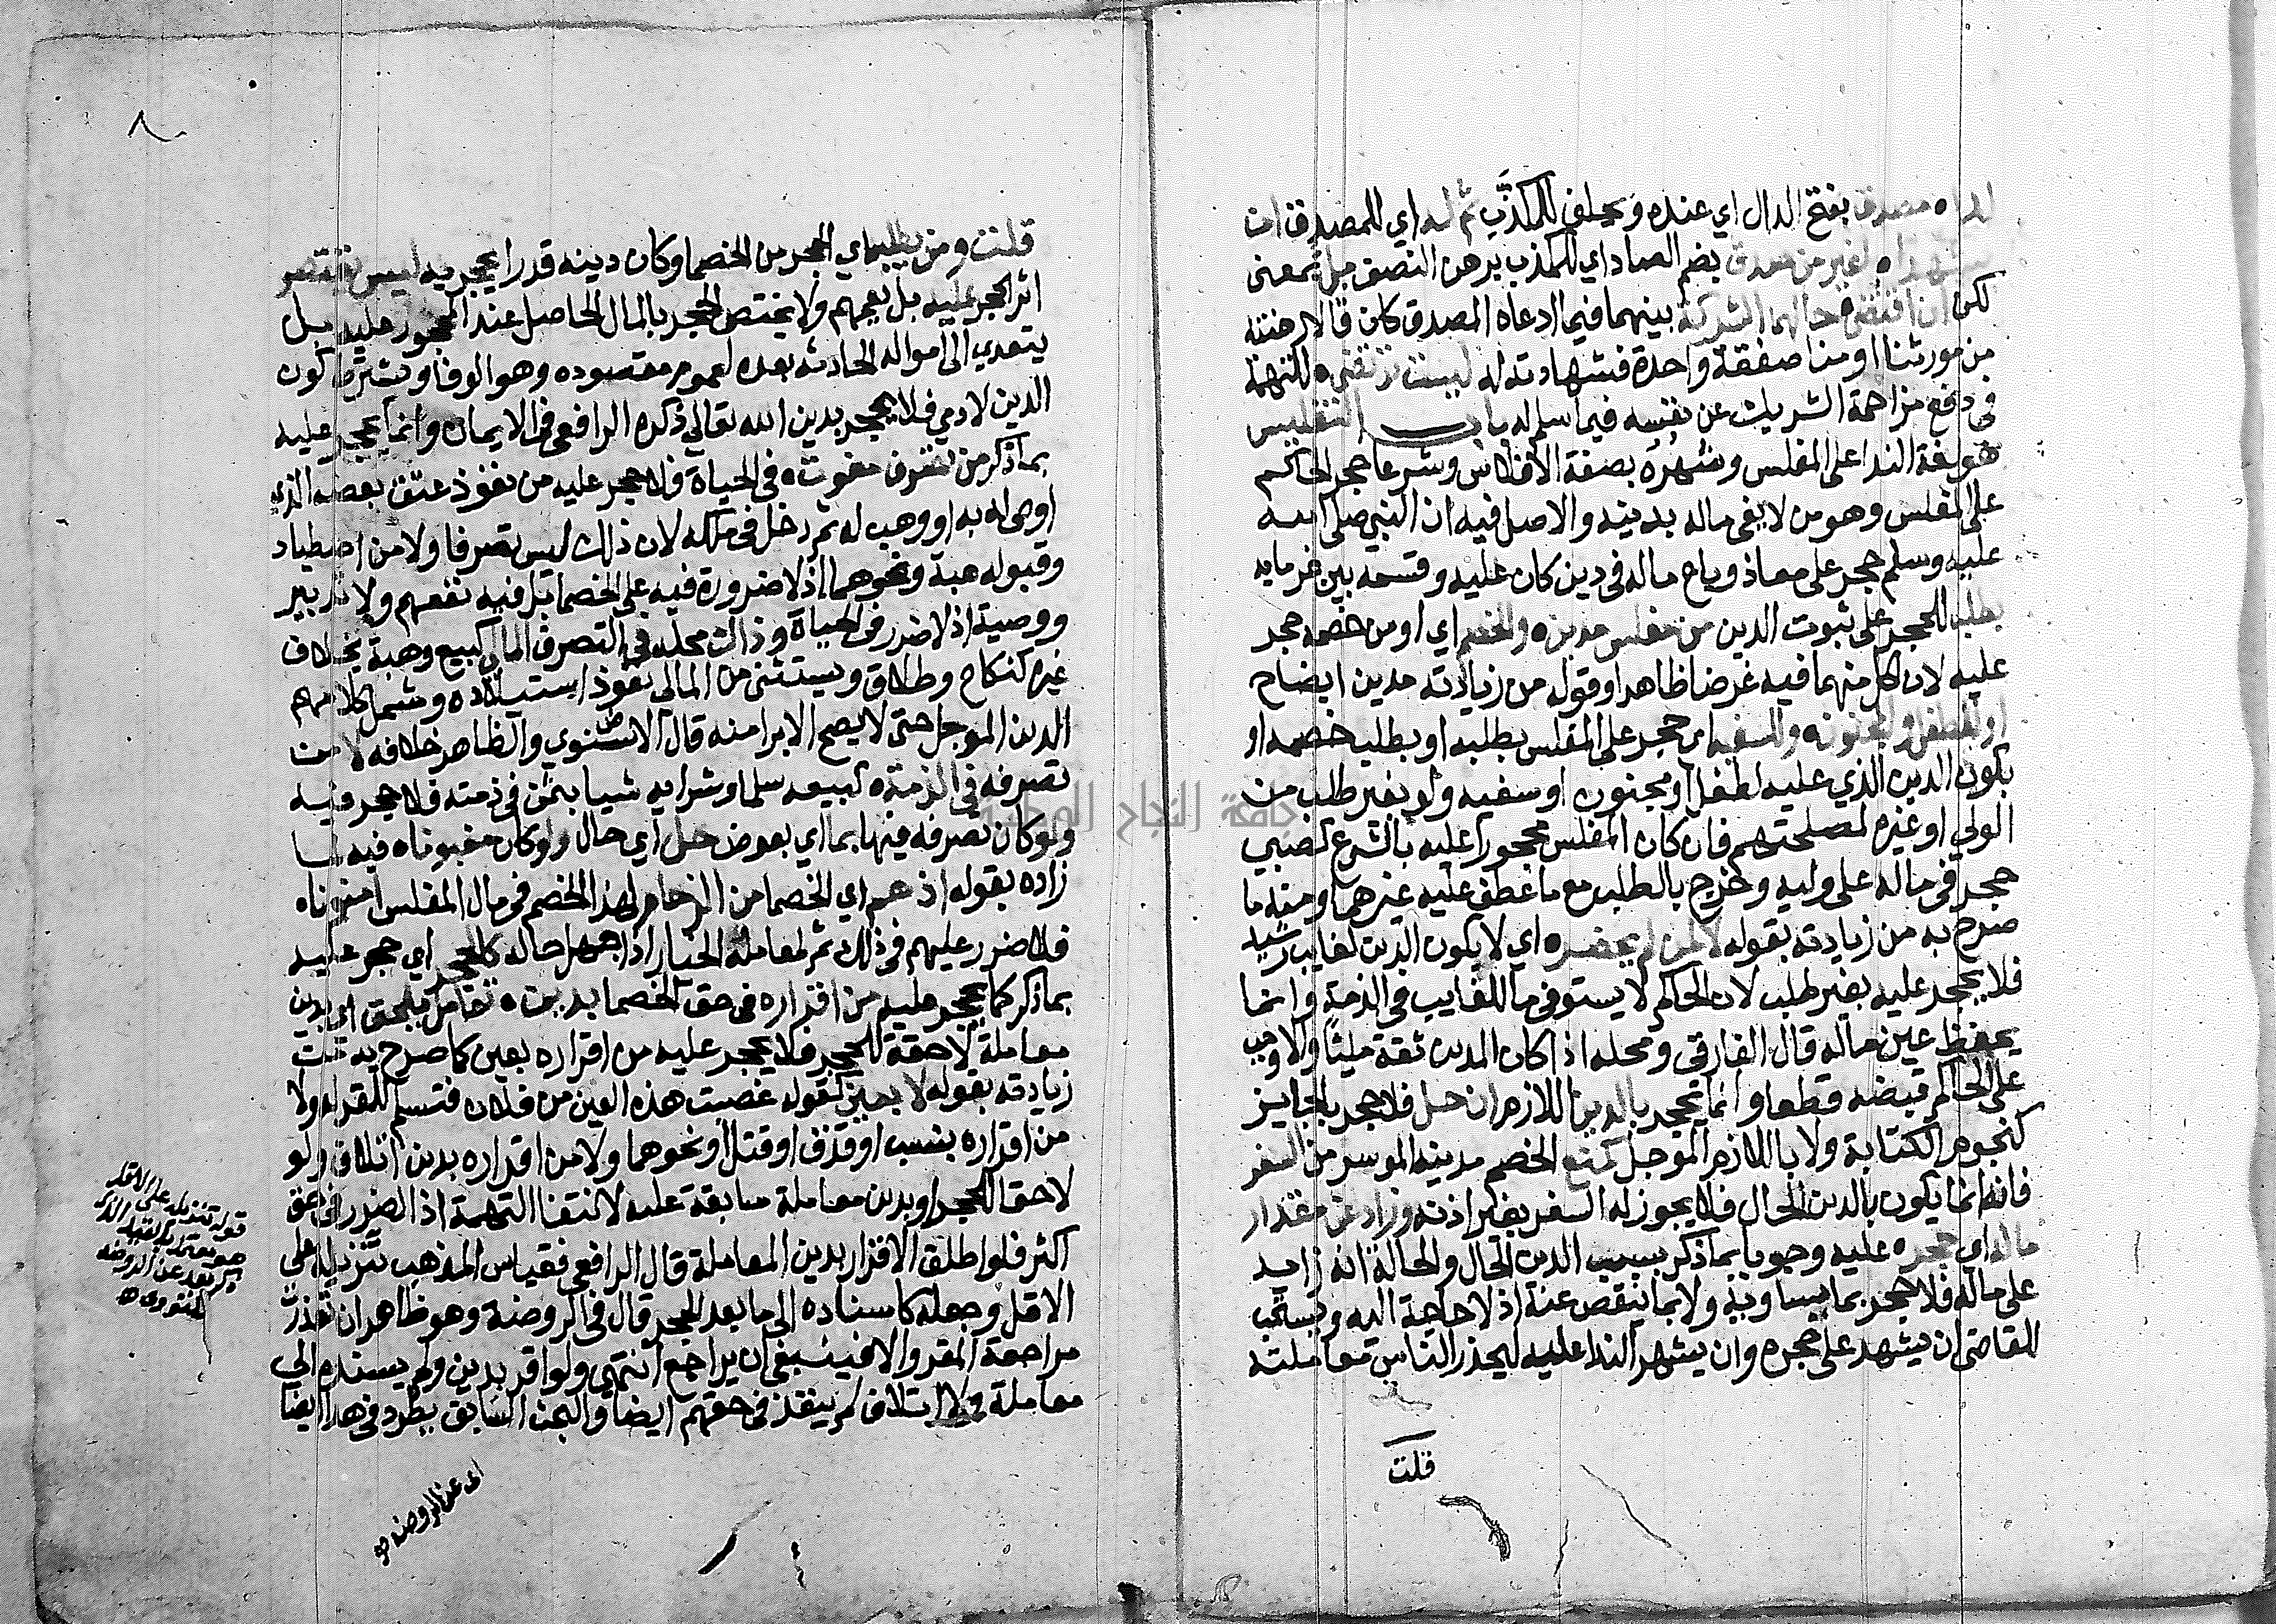 مصدق بفتح الدال اي عنده ويحلف للمكذب ثم له اي للمصدق ان
يشهد لغير من صدق بضم الصاد اي للمكذب برهن النصف بمعنى
لكن ان اقتضى حالهما الشركة بينهما فيما ادعاه المصدق كان قالا رهنته
من مورثنا او منا صفقة واحدة فشهادته له ليست ترتضى للتهمة
في دفع مزاحمة الشريك عن نفسه فيما سلم له باب التفليس
هو لغة الندا على المفلس وشهره بصفة الافلاس وشرعا حجر الحاكم
على المفلس وهو من لا يفي ماله بدينه والاصل فيه ان النبي صلى الله
عليه وسلم حجر على معاذ وباع ماله في دين كان عليه وقسمه بين غرمايه
بطلبه للحجر على ثبوت الدين من مفلس مدين والخصم اي او من خصمه حجر
عليه لان لكل منهما فيه غرضا ظاهرا وقوله من زيادته مدين ايضاح
او لطفل والمجنون والسفيه اي حجر على المفلس بطلبه او بطلب خصمه او
بكون الدين الذي عليه لطفل او مجنون او سفيه ولو بغير طلب من
الولي او غيره لمصلحتهم فان كان المفلس محجورا عليه بالشرع كصبي
حجر في ماله على وليه وخرج بالطلب مع ما عطف عليه غيرهما ومنه ما
صرح به من زيادته بقوله لا لمن لم يحضر اي لا بكون الدين لغايب رشيد
فلا يحجر عليه بغير طلب لان الحاكم لا يستوفي ما للغايب في الذمة وانما
يحفظ عين ماله قال الفارقي ومحله اذا كان المدين ثقة مليا والا وجب
على الحاكم قبضه قطعا وانما يحجر بالدين اللازم ان حل فلا حجر بالجايز
كنجوم الكتابة ولا باللازم الموجل كمنع الخصم مدينه الموسر من السفر
فانه انما يكون بالدين الحال فلا يجوز له السفر بغير اذنه وزاد عن مقدار
ماله اي حجر عليه وجوبا بما ذكر بسبب الدين الحال والحالة انه زايد
على ماله فلا حجر بما يساويه ولا بما ينقص عنه اذ لا حاجة اليه ويستحب
للقاضي ان يشهد على حجره وان يشهر الندا عليه ليحذر الناس معاملته
قلت
قلت ومن يطلبها اي الحجر من الخصما وكان دينه قدرا يحجر به ليس يقتصر
اثر الحجر عليه بل يعمهم ولا يختص الحجر بالمال الحاصل عند المحجور عليه بل
يتعدي الى امواله الحادثه بعده لعموم مقصوده وهو الوفا ويشترط كون
الدين لادمي فلا يحجر بدين الله تعالي ذكره الرافعي في الايمان وانما يحجر عليه
بما ذكر من تصرف مفوت في الحياة فلا حجر عليه من نفوذ عتق بعضه الذي
اوصي له به او وهب له ثم دخل في ملكه لان ذلك ليس تصرفا ولا من اصطياد
وقبوله هبة ونحوهما اذ لا ضرورة فيه على الخصما بل فيه نفعهم ولا تدبير
ووصية اذ لا ضرر في الحياة وذلك محله في التصرف المالي كبيع وهبة بخلاف
غيره كنكاح وطلاق ويستثنى من المالي نفوذ استيلاده وشمل كلامهم
الدين الموجل حتى لا يصح الابرا منه قال الاسنوي والظاهر خلافه لا من
تصرفه في الذمة كبيعه سلما وشرايه شيا بثمن في ذمته فلا حجر فيه
ولو كان تصرفه فيها بما اي بعوض حل اي حال ولو كان مغبونا فيه لما
زاده بقوله اذ هم اي الخصما من الزحام لهذا الخصم في مال المفلس امنونا
فلا ضرر عليهم في ذلك ثم لمعامله الخيار اذا جهل حاله كالحجر اي حجر عليه
بما ذكر كما يحجر عليه من اقراره في حق الخصما بدين تعامل يلحق اي بدين
معاملة لاحقة للحجر فلا يحجر عليه من اقراره بعين كما صرح به من
زيادته بقوله لا بعين كقوله غصبت هذه العين من فلان فتسلم للمقر له ولا
من اقراره بنسب او قذف او قتل او نحوهما ولا من اقراره بدين اتلاف ولو
لاحقا للحجر او بدين معاملة سابقة عليه لانتفا التهمة اذ الضرر في حقه
اكثر فلو اطلق الاقرار بدين المعاملة قال الرافعي فقياس المذهب تنزيله على
الاقل وجعله كاسناده الى ما بعد الحجر قال في الروضة وهو ظاهر ان تعذرت
مراجعة المقر والا فينبغي ان يراجع انتهى ولو اقر بدين ولم يسنده الي
معاملة ولا اتلاف لم ينفذ في حقهم ايضا والبحث السابق يطرد في هذا ايضا
قوله تنزيله على الاقل
اي عن الروضه
جامعة النجاح الوطنية